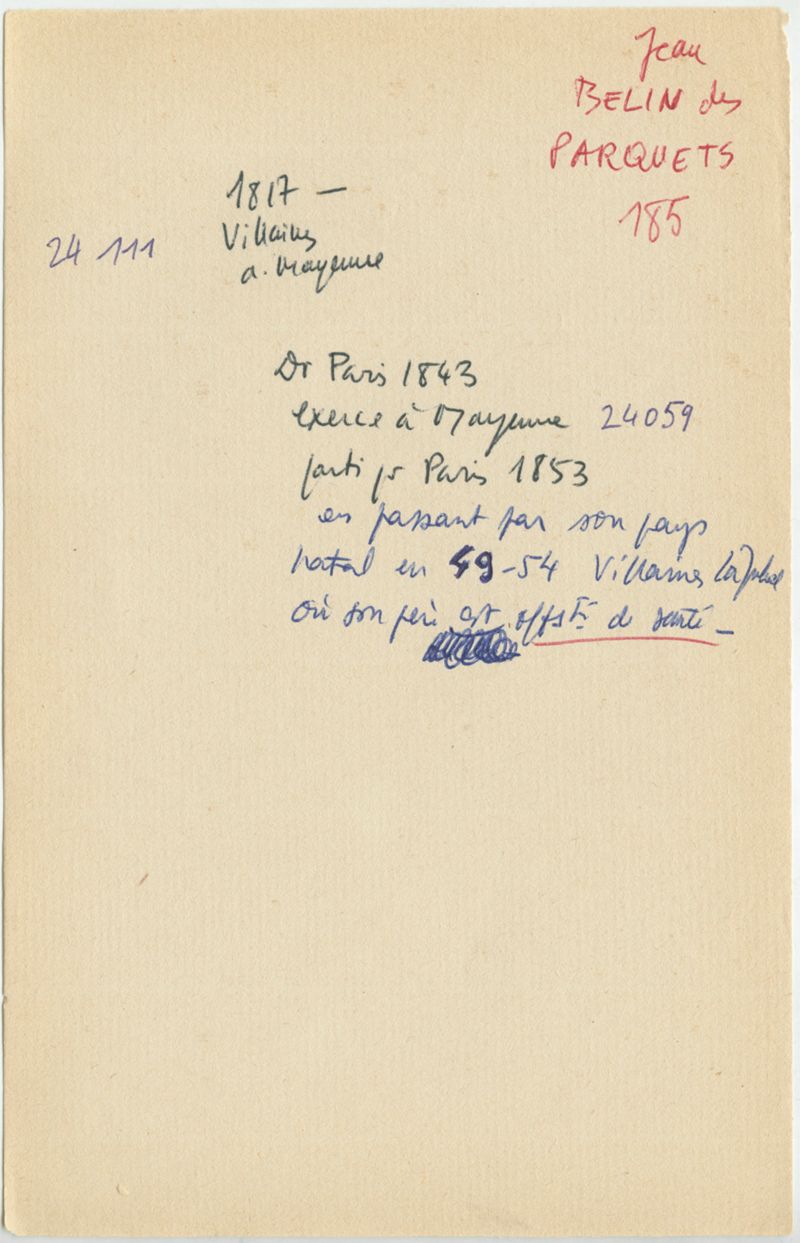 Jean
BELIN des
PARQUETS
185
1817 —
24 111 Villaines
a. Mayenne
Dr Paris 1843
exerce à Mayenne 24059
parti pr Paris 1853
en passant par son pays
natal en 49-54 Villaines
où son père est de santé —